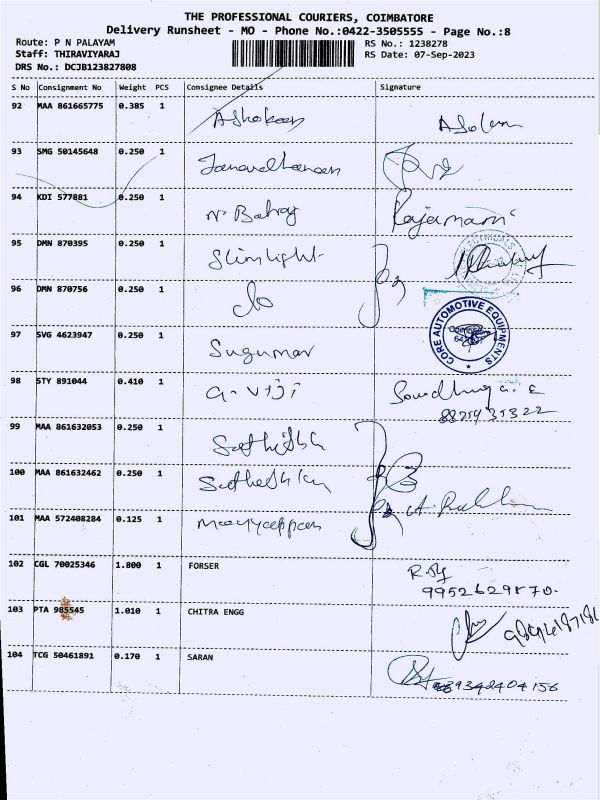 THE PROFESSIONAL COURIERS, COIMBATORE
Delivery Runsheet - MO - Phone No.:0422-3505555 - Page No.:8
Route: P N PALAYAM
RS No.: 1238278
Staff: THIRAVIYARAJ
RS Date: 07-Sep-2023
DRS No.: DCJB123827808
S No Consignment No Weight PCS Consignee Details Signature
92 MAA 861665775 0.385 1 Ashokan
93 SMG 50145648 0.250 1 Janardhanan
94 KDI 577881 0.250 1 Rajamani
95 DMN 870395 0.250 1 Slimlight
96 DMN 870756 0.250 1 do
CORE AUTOMOTIVE EQUIPMENTS
97 SVG 4623947 0.250 1 Sugumar
98 STY 891044 0.410 1 G. Viji
99 MAA 861632053 0.250 1 Sathish
100 MAA 861632462 0.250 1
101 MAA 572408284 0.125 1 Maeyyappan
102 CGL 70025346 1.800 1 FORSER
9952629870.
103 PTA 985545 1.010 1 CHITRA ENGG
104 TCG 50461891 0.170 1 SARAN
9342404156